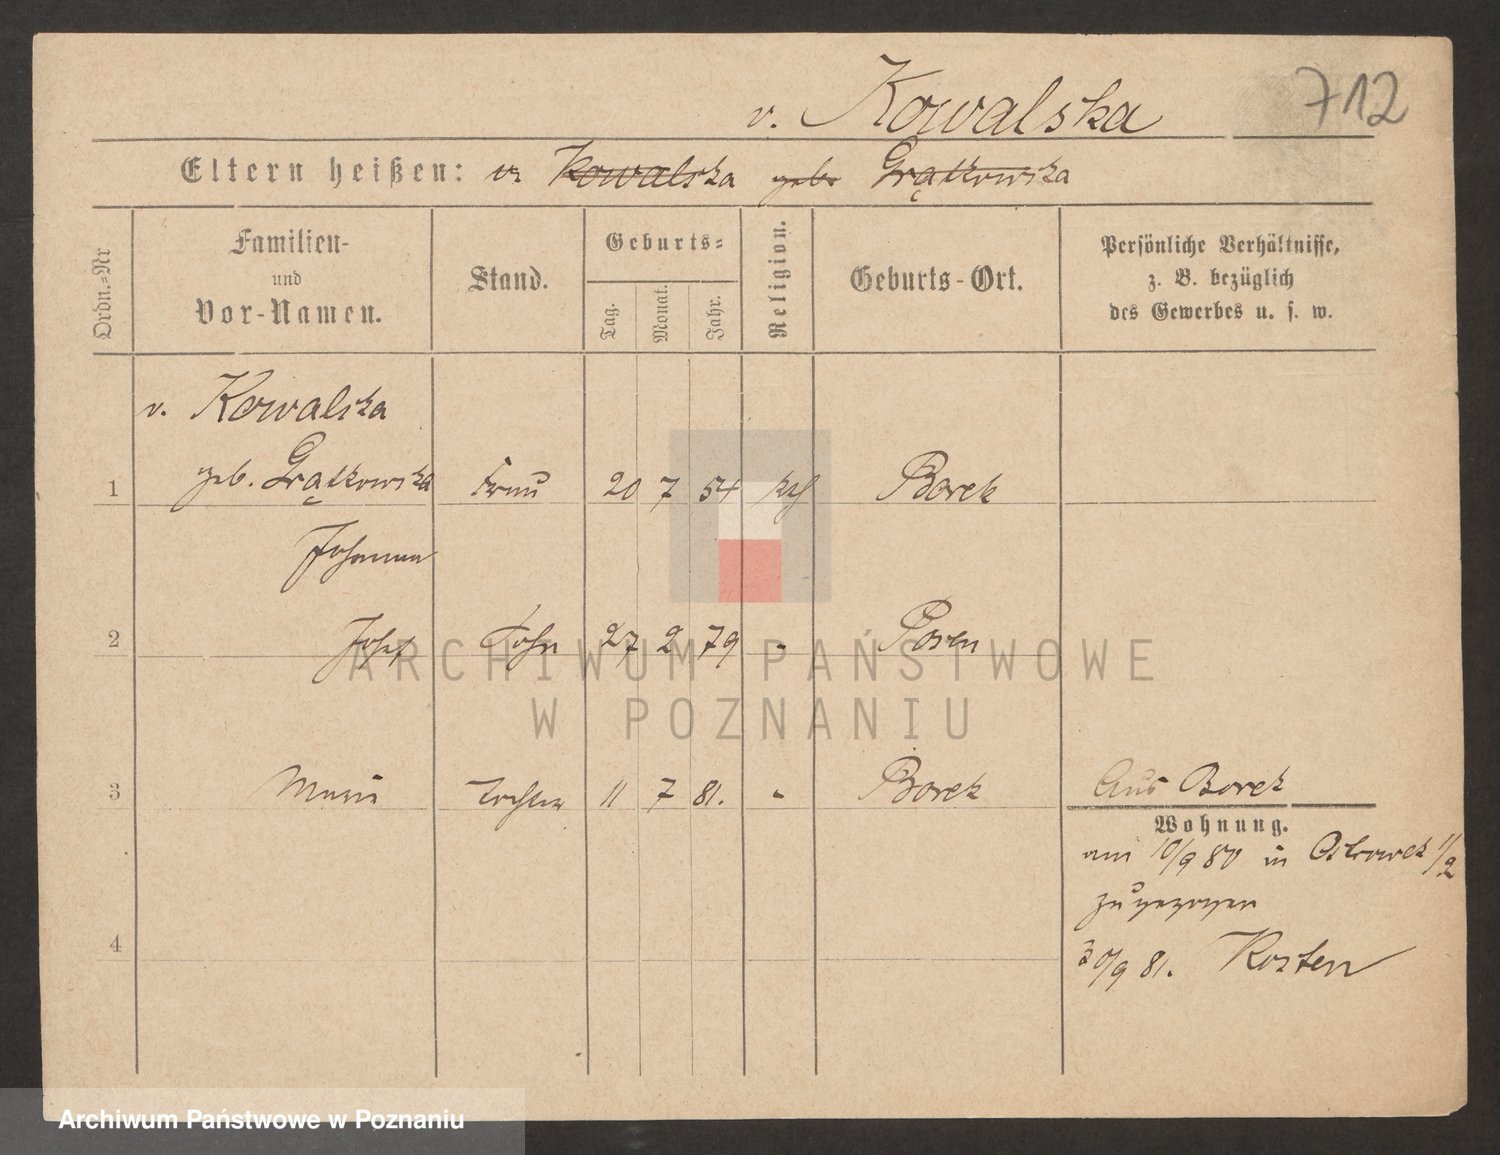 v. Kowalska 712
Eltern heißen: v. Kowalska geb. Grątkowska
Ordn.-Nr
Familien-
und
Vor-Namen.
Stand.
Geburts-
Tag.
Monat.
Jahr.
Religion.
Geburts-Ort.
Persönliche Verhältnisse,
z. B. bezüglich
des Gewerbes u. s. w.
v. Kowalska
1 geb. Grątkowska Frau 20 7 54 kth Borek
Johanna
2 Josef Sohn 27 2 79 - Posen
ARCHIWUM PAŃSTWOWE
W POZNANIU
3 Maria Tochter 11 7 81. - Borek Aus Borek
Wohnung.
am 10/9 80 in Ostrowek 11/2
zugezogen
4
30/9 81. Kosten
Archiwum Państwowe w Poznaniu